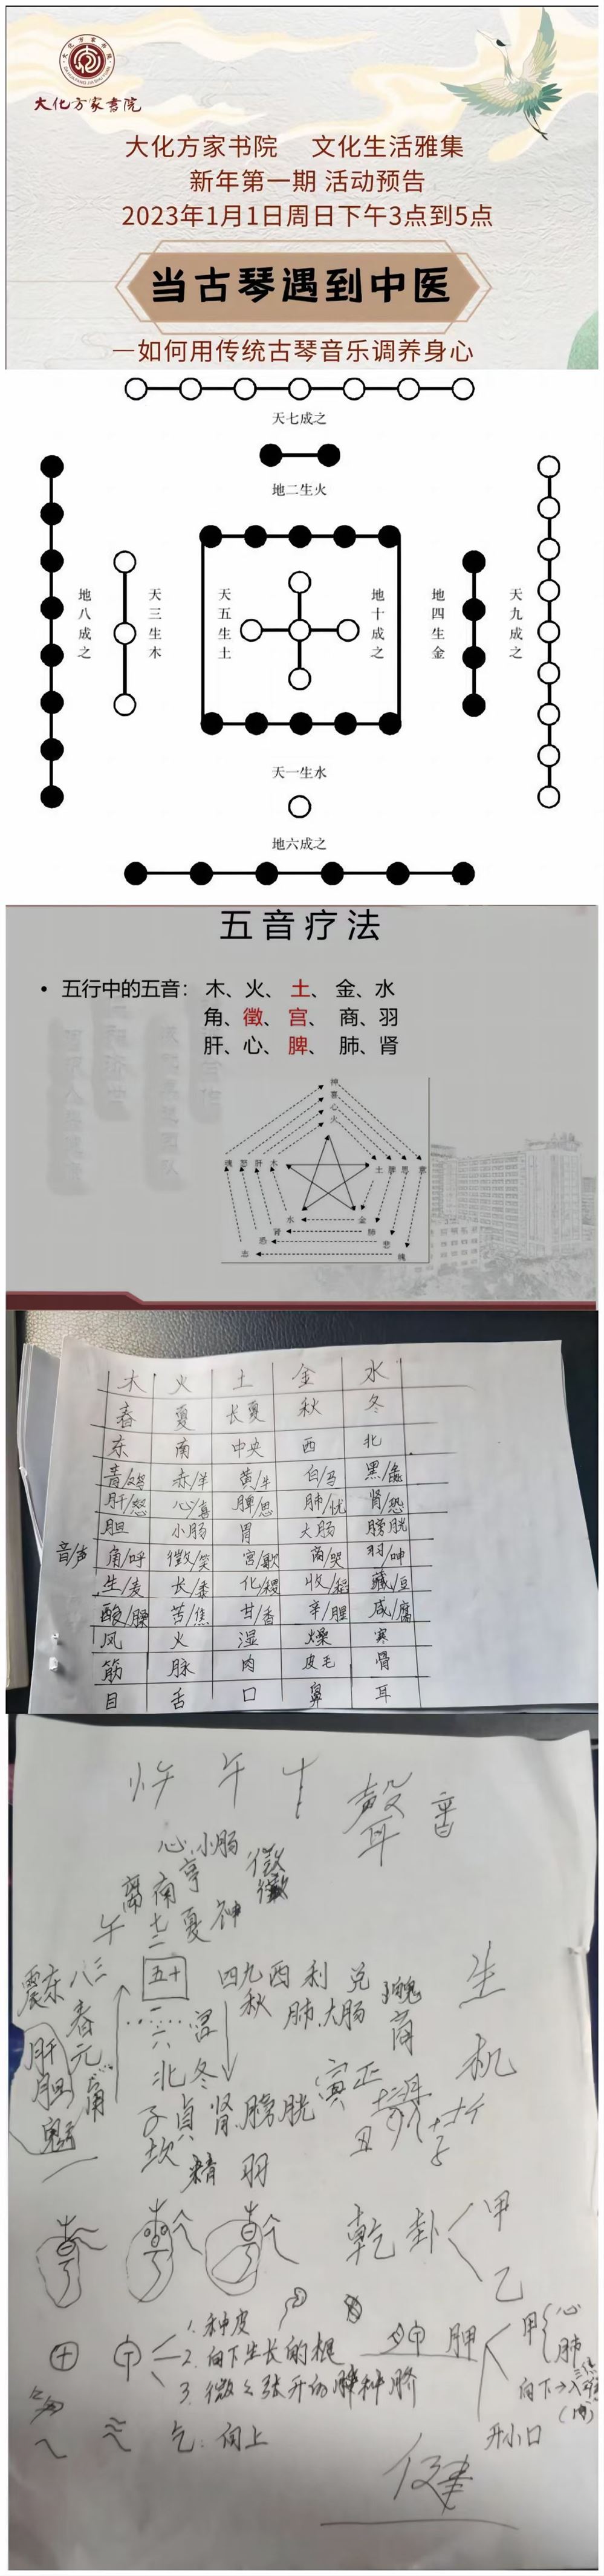 大化方家书院
大化方家书院 文化生活雅集
新年第一期 活动预告
2023年1月1日周日下午3点到5点
当古琴遇到中医
—如何用传统古琴音乐调养身心
天七成之
地二生火
地八成之
天三生木
天五生土
地十成之
地四生金
天九成之
天一生水
地六成之
五音疗法
• 五行中的五音： 木、火、土、金、水
角、徵、宫、商、羽
肝、心、脾、肺、肾
神
喜
心
火
魂 怒 肝 木
土 脾 思 意
水 金
肾 肺
恐 悲
志 魄
木 火 土 金 水
春 夏 长夏 秋 冬
东 南 中央 西 北
青/鸡 赤/羊 黄/牛 白/马 黑/彘
肝/怒 心/喜 脾/思 肺/忧 肾/恐
胆 小肠 胃 大肠 膀胱
音/声 角/呼 徵/笑 宫/歌 商/哭 羽/呻
生/麦 长/黍 化/稷 收/稻 藏/豆
酸/臊 苦/焦 甘/香 辛/腥 咸/腐
风 火 湿 燥 寒
筋 脉 肉 皮毛 骨
目 舌 口 鼻 耳
午 十 聲 音
心 小肠 徵
离 南 亨
午 七 二 夏 神
震 东 八 三 五十 四九 西 利 兑
春 秋 肺.大肠 魄
肝 元 一 六 宫 商 生
胆 角 北 冬 机
魂 子 貞 肾.膀胱 寅 正
坎 丑
精 羽
乾 卦 甲
乙
1. 种皮
2. 向下生长的根
3. 微微张开的
胛 甲 心
肺
向下
开小口
气：向上
健